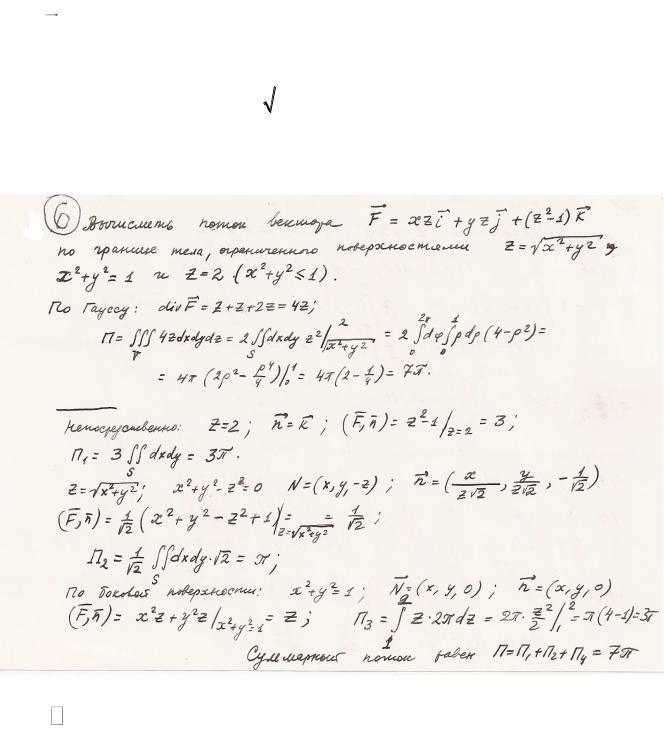 √
⑥ Вычислить поток вектора F⃗ = xz i⃗ + yz j⃗ + (z²-1) k⃗
по границе тела, ограниченного поверхностями z = √(x²+y²)
x²+y²=1 и z=2 (x²+y²≤1).
По Гауссу: div F⃗ = z+z+2z = 4z;
П = ∭_T 4z dxdydz = 2 ∬_S dxdy z² |_{√(x²+y²)}^2 = 2 ∫_0^{2π} dφ ∫_0^1 ρ dρ (4-ρ²) =
= 4π (2ρ² - ρ⁴/4) |_0^1 = 4π (2 - 1/4) = 7π.
Непосредственно: z=2; n⃗ = k⃗; (F̄, n̄) = z²-1 |_{z=2} = 3;
П₁ = 3 ∬_S dxdy = 3π.
z = √(x²+y²); x²+y²-z²=0 N = (x, y, -z); n⃗ = (x/(z√2), y/(z√2), -1/√2)
(F̄, n̄) = 1/√2 (x²+y²-z²+1) |_{z=√(x²+y²)} = = 1/√2;
П₂ = 1/√2 ∬_S dxdy·√2 = π;
По боковой поверхности: x²+y²=1; N⃗ = (x, y, 0); n⃗ = (x, y, 0)
(F̄, n̄) = x²z + y²z |_{x²+y²=1} = z; П₃ = ∫_1^2 z·2π dz = 2π· z²/2 |_1^2 = π(4-1) = 3π
Суммарный поток равен П = П₁+П₂+П₄ = 7π